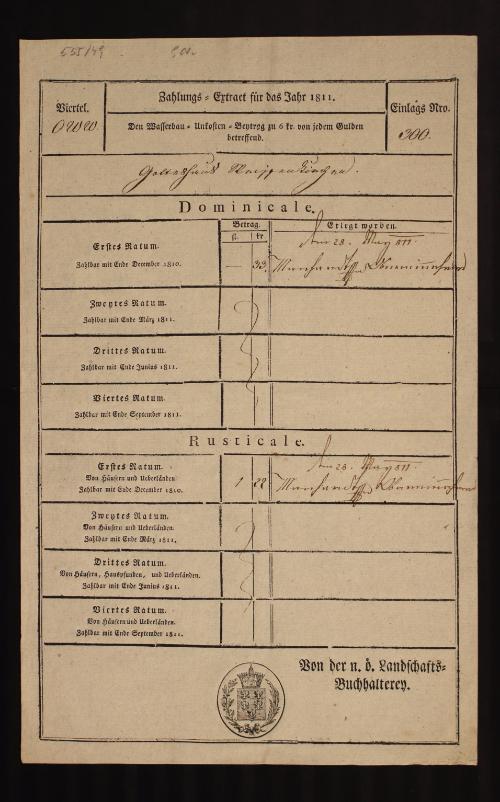 555/49
Viertel.
Zahlungs-Extract für das Jahr 1811.
Einlags Nro.
Den Wasserbau-Unkosten-Beytrag zu 6 kr. von jedem Gulden
betreffend.
300.
Gotteshaus
Dominicale.
Betrag.
fl. kr.
Erlegt worden.
Erstes Ratum.
Zahlbar mit Ende December 1810.
— 33.
den 28. May 811.
Zweytes Ratum.
Zahlbar mit Ende März 1811.
Drittes Ratum.
Zahlbar mit Ende Junius 1811.
Viertes Ratum.
Zahlbar mit Ende September 1811.
Rusticale.
Erstes Ratum.
Von Häusern und Ueberländen.
Zahlbar mit Ende December 1810.
1 22
den 28. May 811.
Zweytes Ratum.
Von Häusern und Ueberländen.
Zahlbar mit Ende März 1811.
Drittes Ratum.
Von Häusern, Hauspfunden, und Ueberländen.
Zahlbar mit Ende Junius 1811.
Viertes Ratum.
Von Häusern und Ueberländen.
Zahlbar mit Ende September 1811.
Von der n. ö. Landschafts-
Buchhalterey.